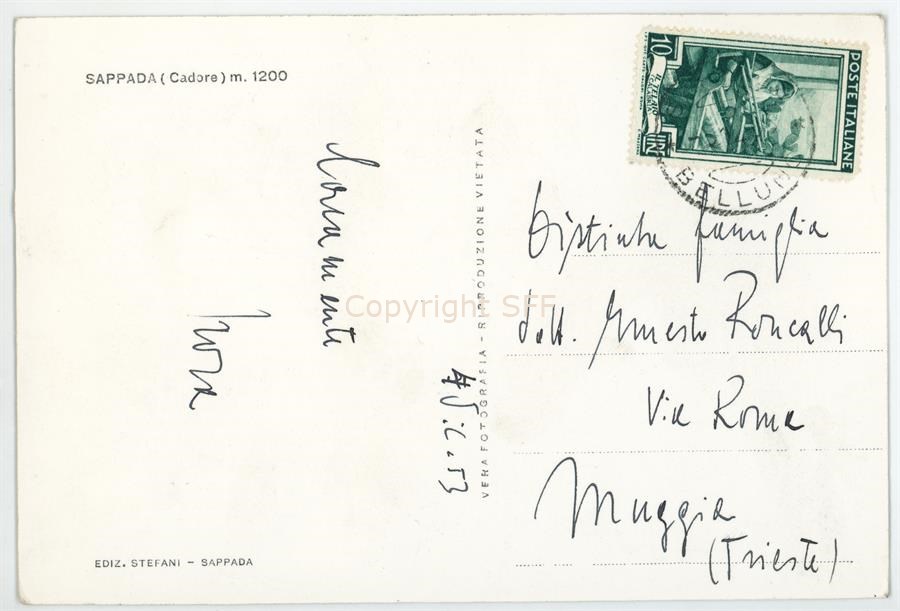 SAPPADA (Cadore) m. 1200
Caramente
Nora
VERA FOTOGRAFIA - RIPRODUZIONE VIETATA
EDIZ. STEFANI – SAPPADA
POSTE ITALIANE
10
BELLUNO
Distinta famiglia
dott. Ernesto Roncalli
Via Roma
Muggia
(Trieste)
Copyright SFF